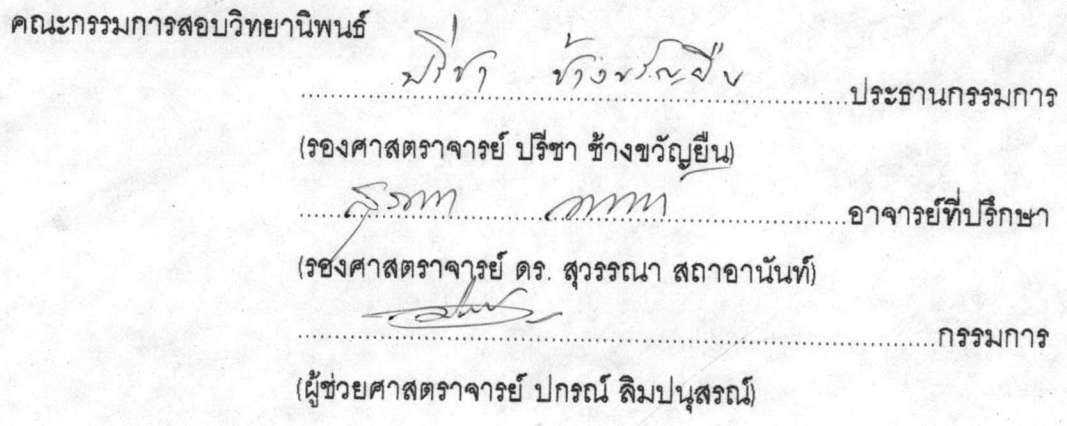 คณะกรรมการสอบวิทยานิพนธ์
ปรีชา ช้างขวัญยืน
........................................ประธานกรรมการ
(รองศาสตราจารย์ ปรีชา ช้างขวัญยืน)
........................................อาจารย์ที่ปรึกษา
(รองศาสตราจารย์ ดร. สุวรรณา สถาอานันท์)
........................................กรรมการ
(ผู้ช่วยศาสตราจารย์ ปกรณ์ ลิมปนุสรณ์)